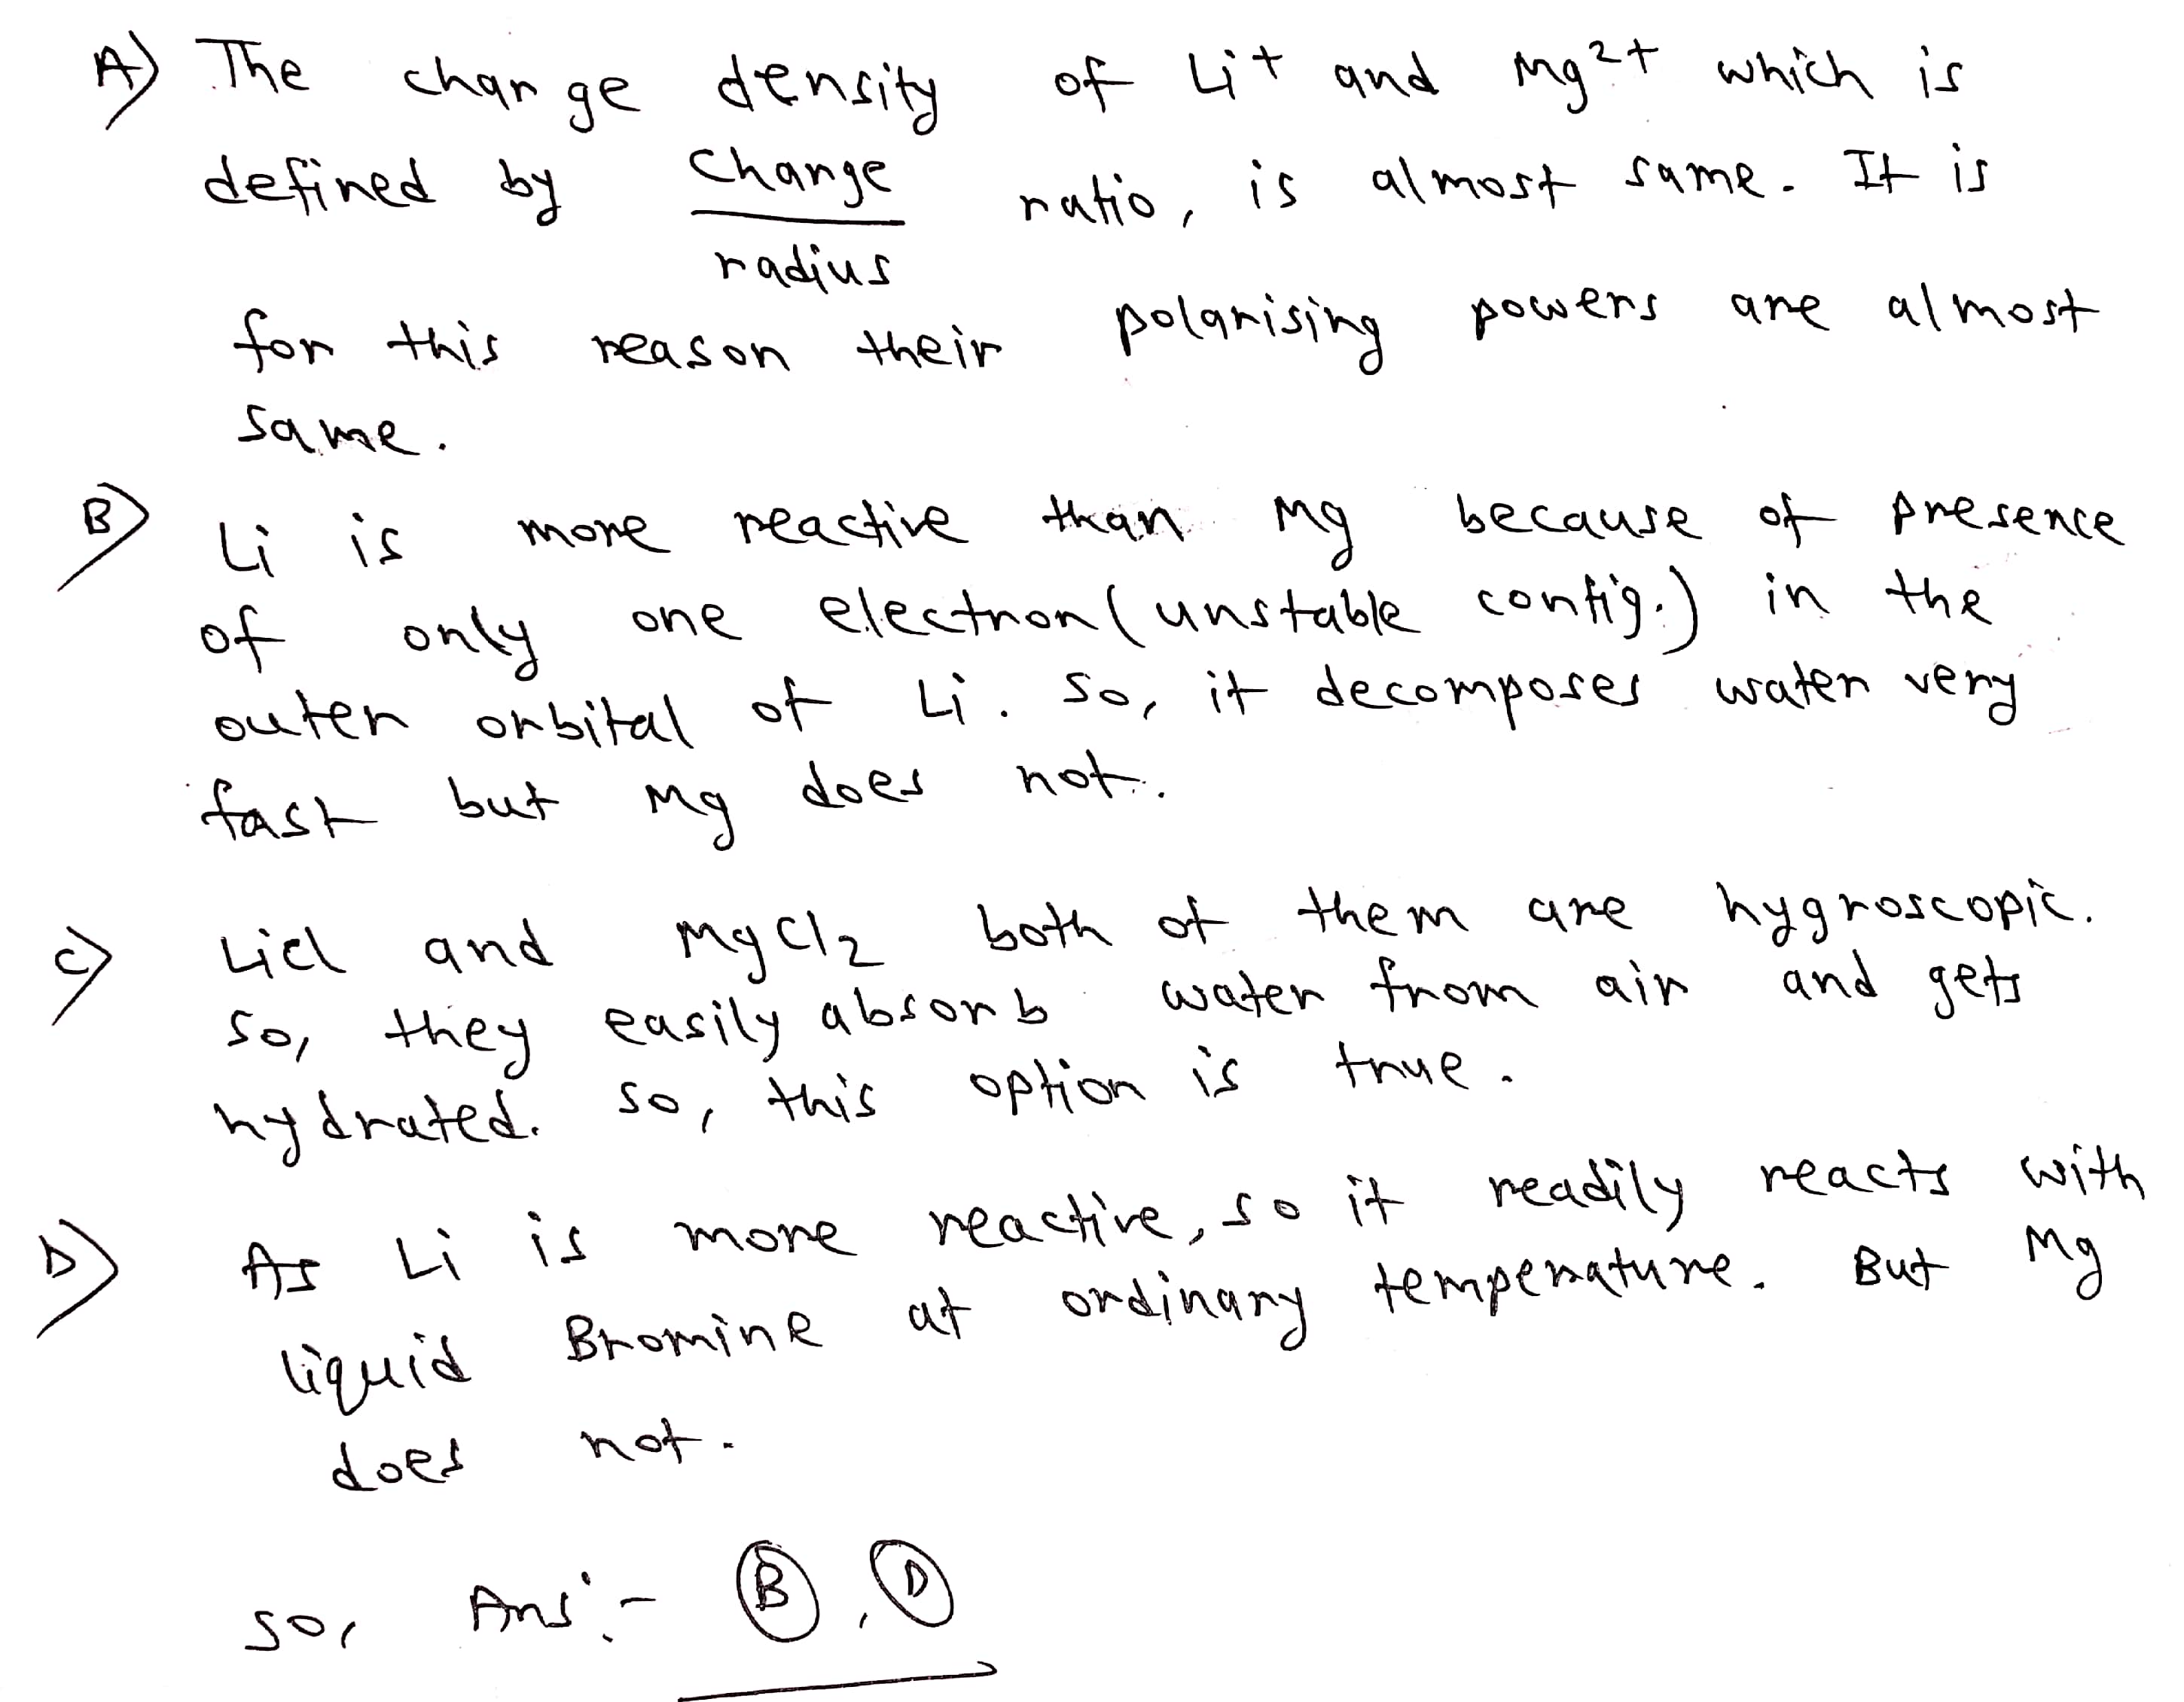 A) The change density of Li+ and Mg2+ which is
defined by change/radius ratio, is almost same. It is
for this reason their polarising powers are almost
same.
B) Li is more reactive than Mg because of presence
of only one electron (unstable config.) in the
outer orbital of Li. So, it decomposes water very
fast but Mg does not.
C) LiCl and MgCl2 both of them are hygroscopic.
So, they easily absorb water from air and gets
hydrated. So, this option is true.
D) As Li is more reactive, so it readily reacts with
liquid Bromine at ordinary temperature. But Mg
does not.
So, Ans:- B, D